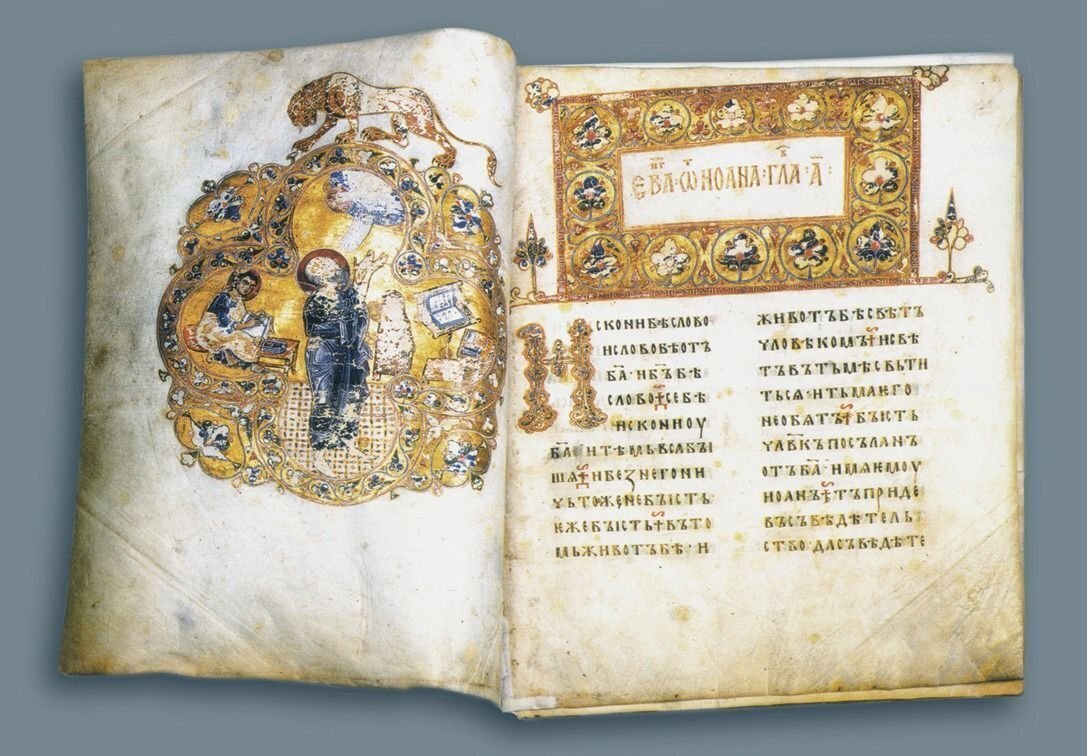 ЕВА҃·Ѡ҃ИОАНА·ГЛА·А҃·
ИСКОНИБѢСЛОВО
ИСЛОВОБѢОТЪ
БА҃·ИБЪБѢ
СЛОВО·СЕБѢ
ИСКОНИОУ
БА҃·ИТѢМЬВСАБЫ
ША·ИБЕЗНЕГОНИ
ЧЬТОЖЕНЕБЫСТЬ
ѤЖЕБЫСТЬ·ВЪТО
МЬЖИВОТЪБѢ·И
ЖИВОТЪБѢСВѢТЪ
ЧЛОВѢКОМЪ·ИСВѢ
ТЪВЪТЬМѢСВЬТИ
ТЬСѦ·ИТЬМАѤГО
НЕОБѦТЪ·БЫСТЬ
ЧЛ҃ВКЪПОСЪЛАНЪ
ОТЪБА҃·ИМѦѤМОУ
ИОАНЪ·ТЪПРИДЕ
ВЪСЪВѢДѢТЕЛЬ
СТВО·ДАСЪВѢДѢТЕ